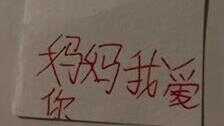 妈妈我爱
你